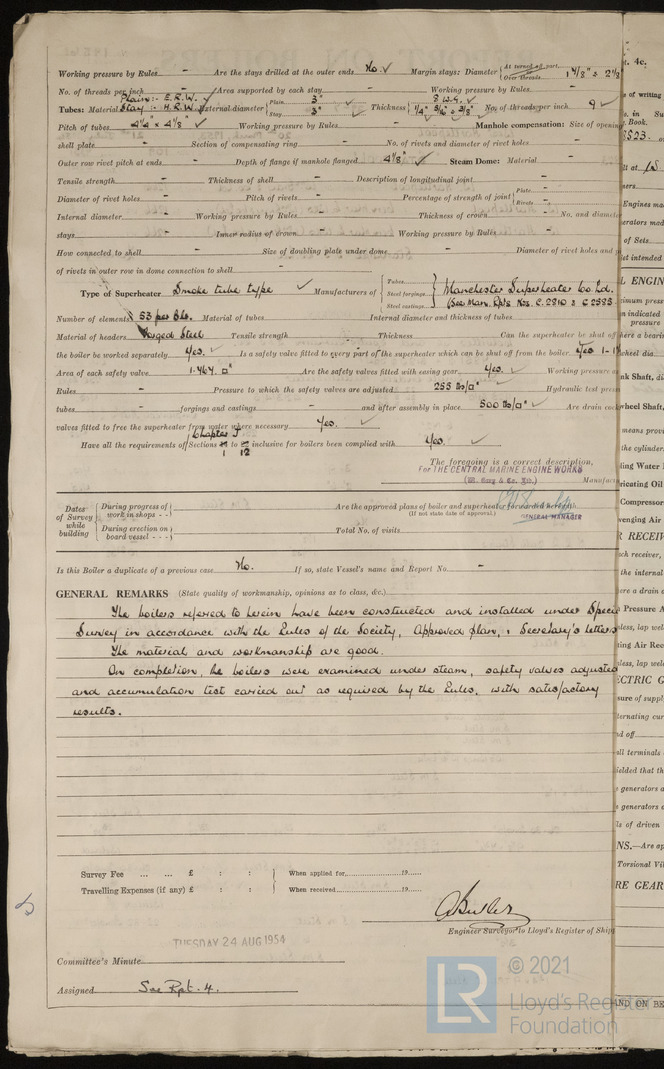 Working pressure by Rules - Are the stays drilled at the outer ends No. Margin stays: Diameter { At turned off part, or Over threads 1 7/8" & 2 1/8
No. of threads per inch - Area supported by each stay - Working pressure by Rules -
Tubes: Material Plain :- E.R.W. Stay :- H.R.W. External diameter { Plain 3" Stay 3" Thickness { 8 W.G. 1/4" 5/16" & 3/8" No. of threads per inch 9
Pitch of tubes 4 1/4" x 4 1/8" Working pressure by Rules - Manhole compensation: Size of opening
shell plate - Section of compensating ring - No. of rivets and diameter of rivet holes -
Outer row rivet pitch at ends - Depth of flange if manhole flanged 4 1/8" Steam Dome: Material -
Tensile strength - Thickness of shell - Description of longitudinal joint -
Diameter of rivet holes - Pitch of rivets - Percentage of strength of joint { Plate - Rivets -
Internal diameter - Working pressure by Rules - Thickness of crown - No. and diameter
stays - Inner radius of crown - Working pressure by Rules -
How connected to shell - Size of doubling plate under dome - Diameter of rivet holes and
of rivets in outer row in dome connection to shell -
Type of Superheater Smoke tube type Manufacturers of { Tubes Steel forgings Steel castings } Manchester Superheater Co Ltd. (See Man. Rpts Nos. C.2810 & C 2585
Number of elements 53 per Blr. Material of tubes - Internal diameter and thickness of tubes -
Material of headers Forged Steel Tensile strength - Thickness - Can the superheater be shut off
the boiler be worked separately Yes. Is a safety valve fitted to every part of the superheater which can be shut off from the boiler Yes 1-1
Area of each safety valve 1.767 □" Are the safety valves fitted with easing gear Yes. Working pressure
Rules - Pressure to which the safety valves are adjusted 255 lbs/□" Hydraulic test press
tubes - forgings and castings - and after assembly in place 500 lb/□" Are drain cock
valves fitted to free the superheater from water where necessary Yes.
Have all the requirements of Chapter J Sections 1 to 12 inclusive for boilers been complied with Yes.
The foregoing is a correct description,
For THE CENTRAL MARINE ENGINE WORKS
(Wm. Gray & Co. Ltd.) Manufact
GENERAL MANAGER
Dates of Survey while building { During progress of work in shops - - During erection on board vessel - - - } Are the approved plans of boiler and superheater forwarded herewith
(If not state date of approval.)
Total No. of visits
Is this Boiler a duplicate of a previous case No. If so, state Vessel's name and Report No. -
GENERAL REMARKS (State quality of workmanship, opinions as to class, &c.)
The boilers refered to herein have been constructed and installed under Special
Survey in accordance with the Rules of the Society, Approved plan, & Secretary's letters
The material and workmanship are good.
On completion, he boilers were examined under steam, safety valves adjusted
and accumulation test carried out as required by the Rules, with satisfactory
results.
Survey Fee ... ... £ : : When applied for 19
Travelling Expenses (if any) £ : : When received 19
Engineer Surveyor to Lloyd's Register of Ship
TUESDAY 24 AUG 1954
Committee's Minute
Assigned See Rpt. 4.
LR © 2021
Lloyd's Register
Foundation